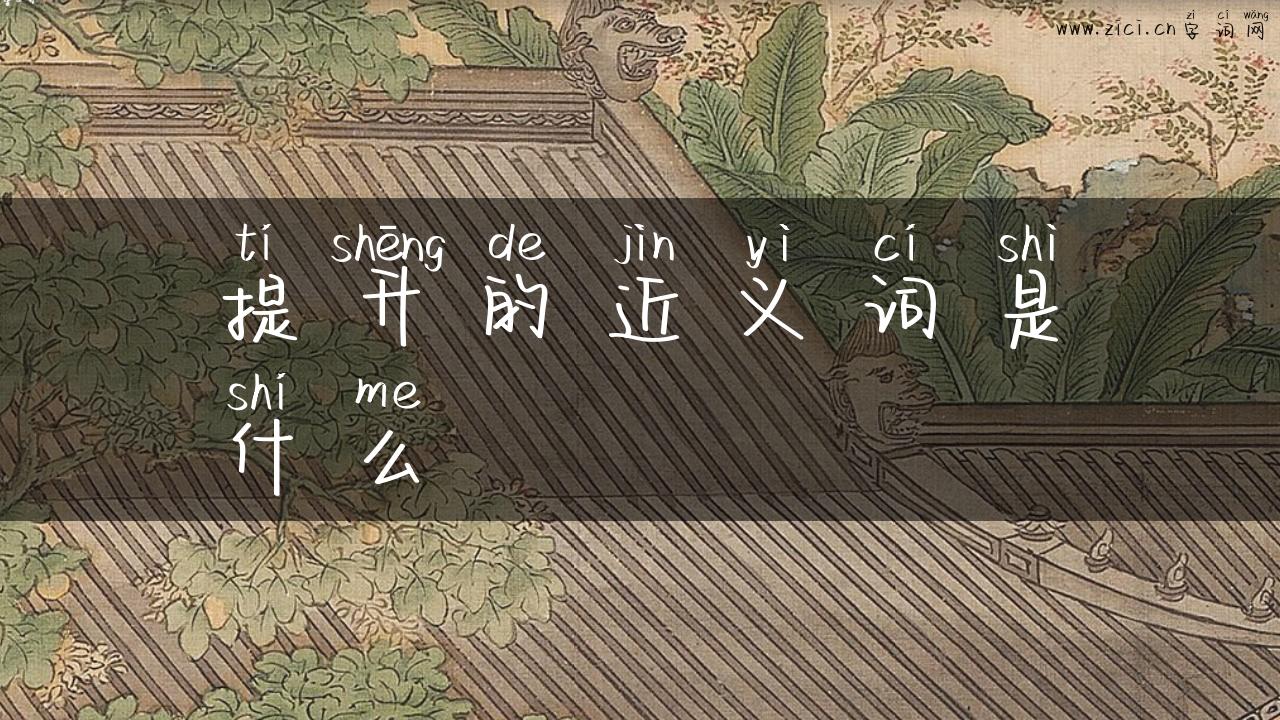 zì cí wǎng
www.zici.cn 字词网
tí shēng de jìn yì cí shì
提升的近义词是
shí me
什么